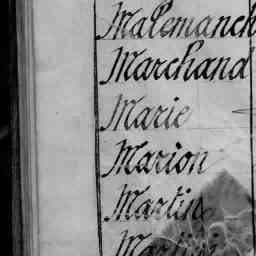 Malemanch
Marchand
Marie
Marion
Martin
Martin